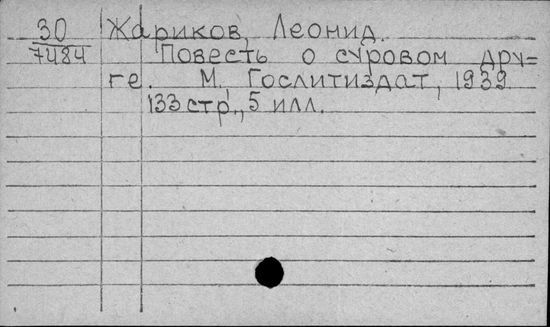 30 Жариков, Леонид.
7484 Повесть о суровом дру=
ге. М., Гослитиздат, 1939.
133 стр., 5 илл.